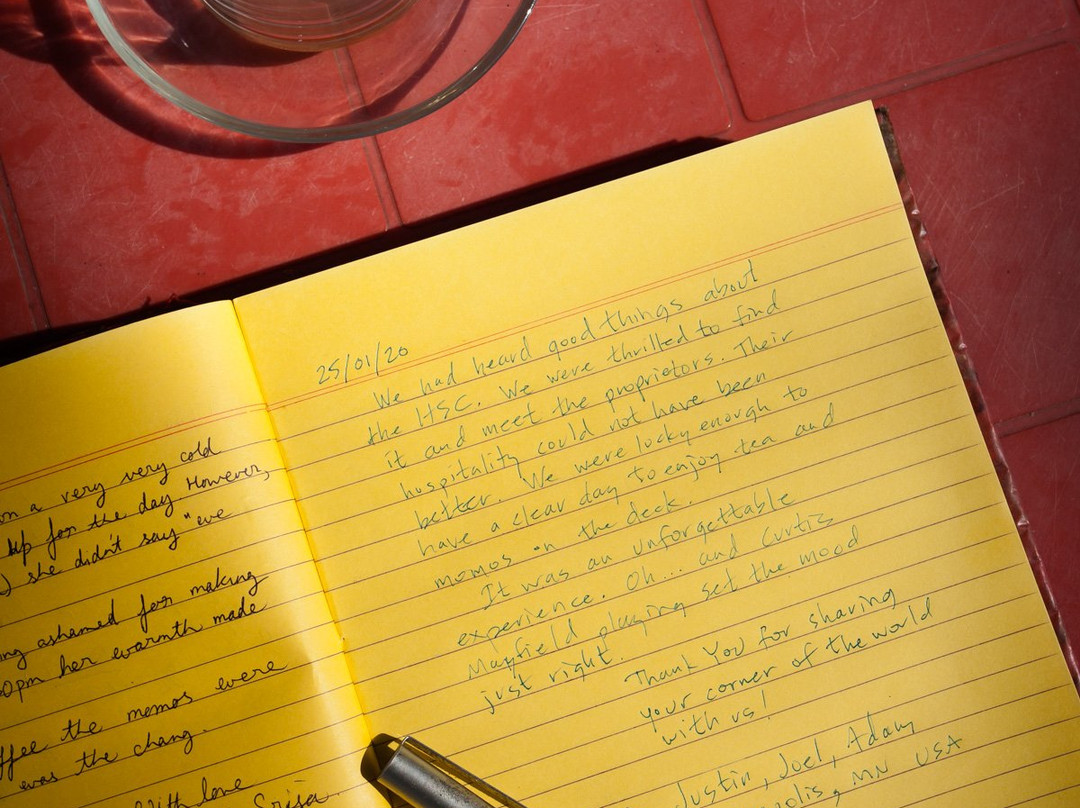 on a very very cold
up for the day However,
) she didn't say "we
ashamed for making
0pm her warmth made
the momos were
was the chang.
With love
Srija.
25/01/20
We had heard good things about
the HSC. We were thrilled to find
it and meet the proprietors. Their
hospitality could not have been
better. We were lucky enough to
have a clear day to enjoy tea and
momos on the deck.
It was an unforgettable
experience. Oh... and Curtis
Mayfield playing set the mood
just right.
Thank You for sharing
your corner of the world
with us!
Justin, Joel, Adam
MN USA